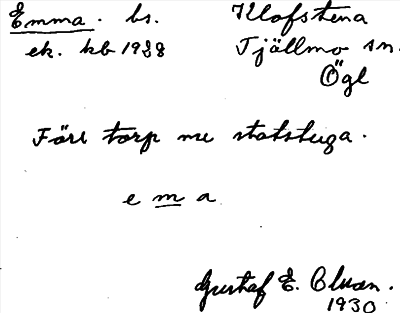 Emma. bs. Klofstena
ek. kb 1928 Tjällmo sn.
Ögl
Förr torp nu statstuga.
e m a
Gustaf E. Clusen.
1930